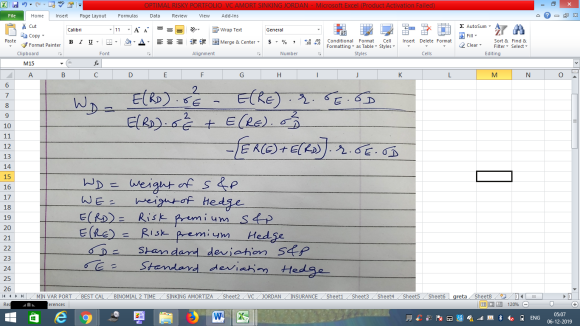 OPTIMAL RISKY PORTFOLIO VC AMORT SINKING JORDAN - Microsoft Excel (Product Activation Failed)
File Home Insert Page Layout Formulas Data Review View
Cut
Copy
Format Painter
Paste
Clipboard
Calibri 11
Font
Wrap Text
Merge & Center
Alignment
General
Number
Conditional Formatting
Format as Table
Cell Styles
Styles
Insert Delete Format
Cells
AutoSum
Fill
Clear
Sort & Filter
Find & Select
Editing
M15
A B C D E F G H I J K L M N O
6
7
8
9
10
11
12
13
14
15
16
17
18
19
20
21
22
23
24
25
26
WD = E(RD) . σE² - E(RE) . r. σE . σD
E(RD) . σE² + E(RE) . σD²
-[E R(E) + E(RD)] . r. σE . σD
WD = Weight of S&P
WE = Weight of Hedge
E(RD) = Risk premium S&P
E(RE) = Risk premium Hedge
σD = Standard deviation S&P
σE = Standard deviation Hedge
MIN VAR PORT BEST CAL BINOMIAL 2 TIME SINKING AMORTIZA Sheet2 VC JORDAN INSURANCE Sheet1 Sheet3 Sheet4 Sheet5 Sheet6 greta Sheet8
130%
ENG
05:07
06-12-2019